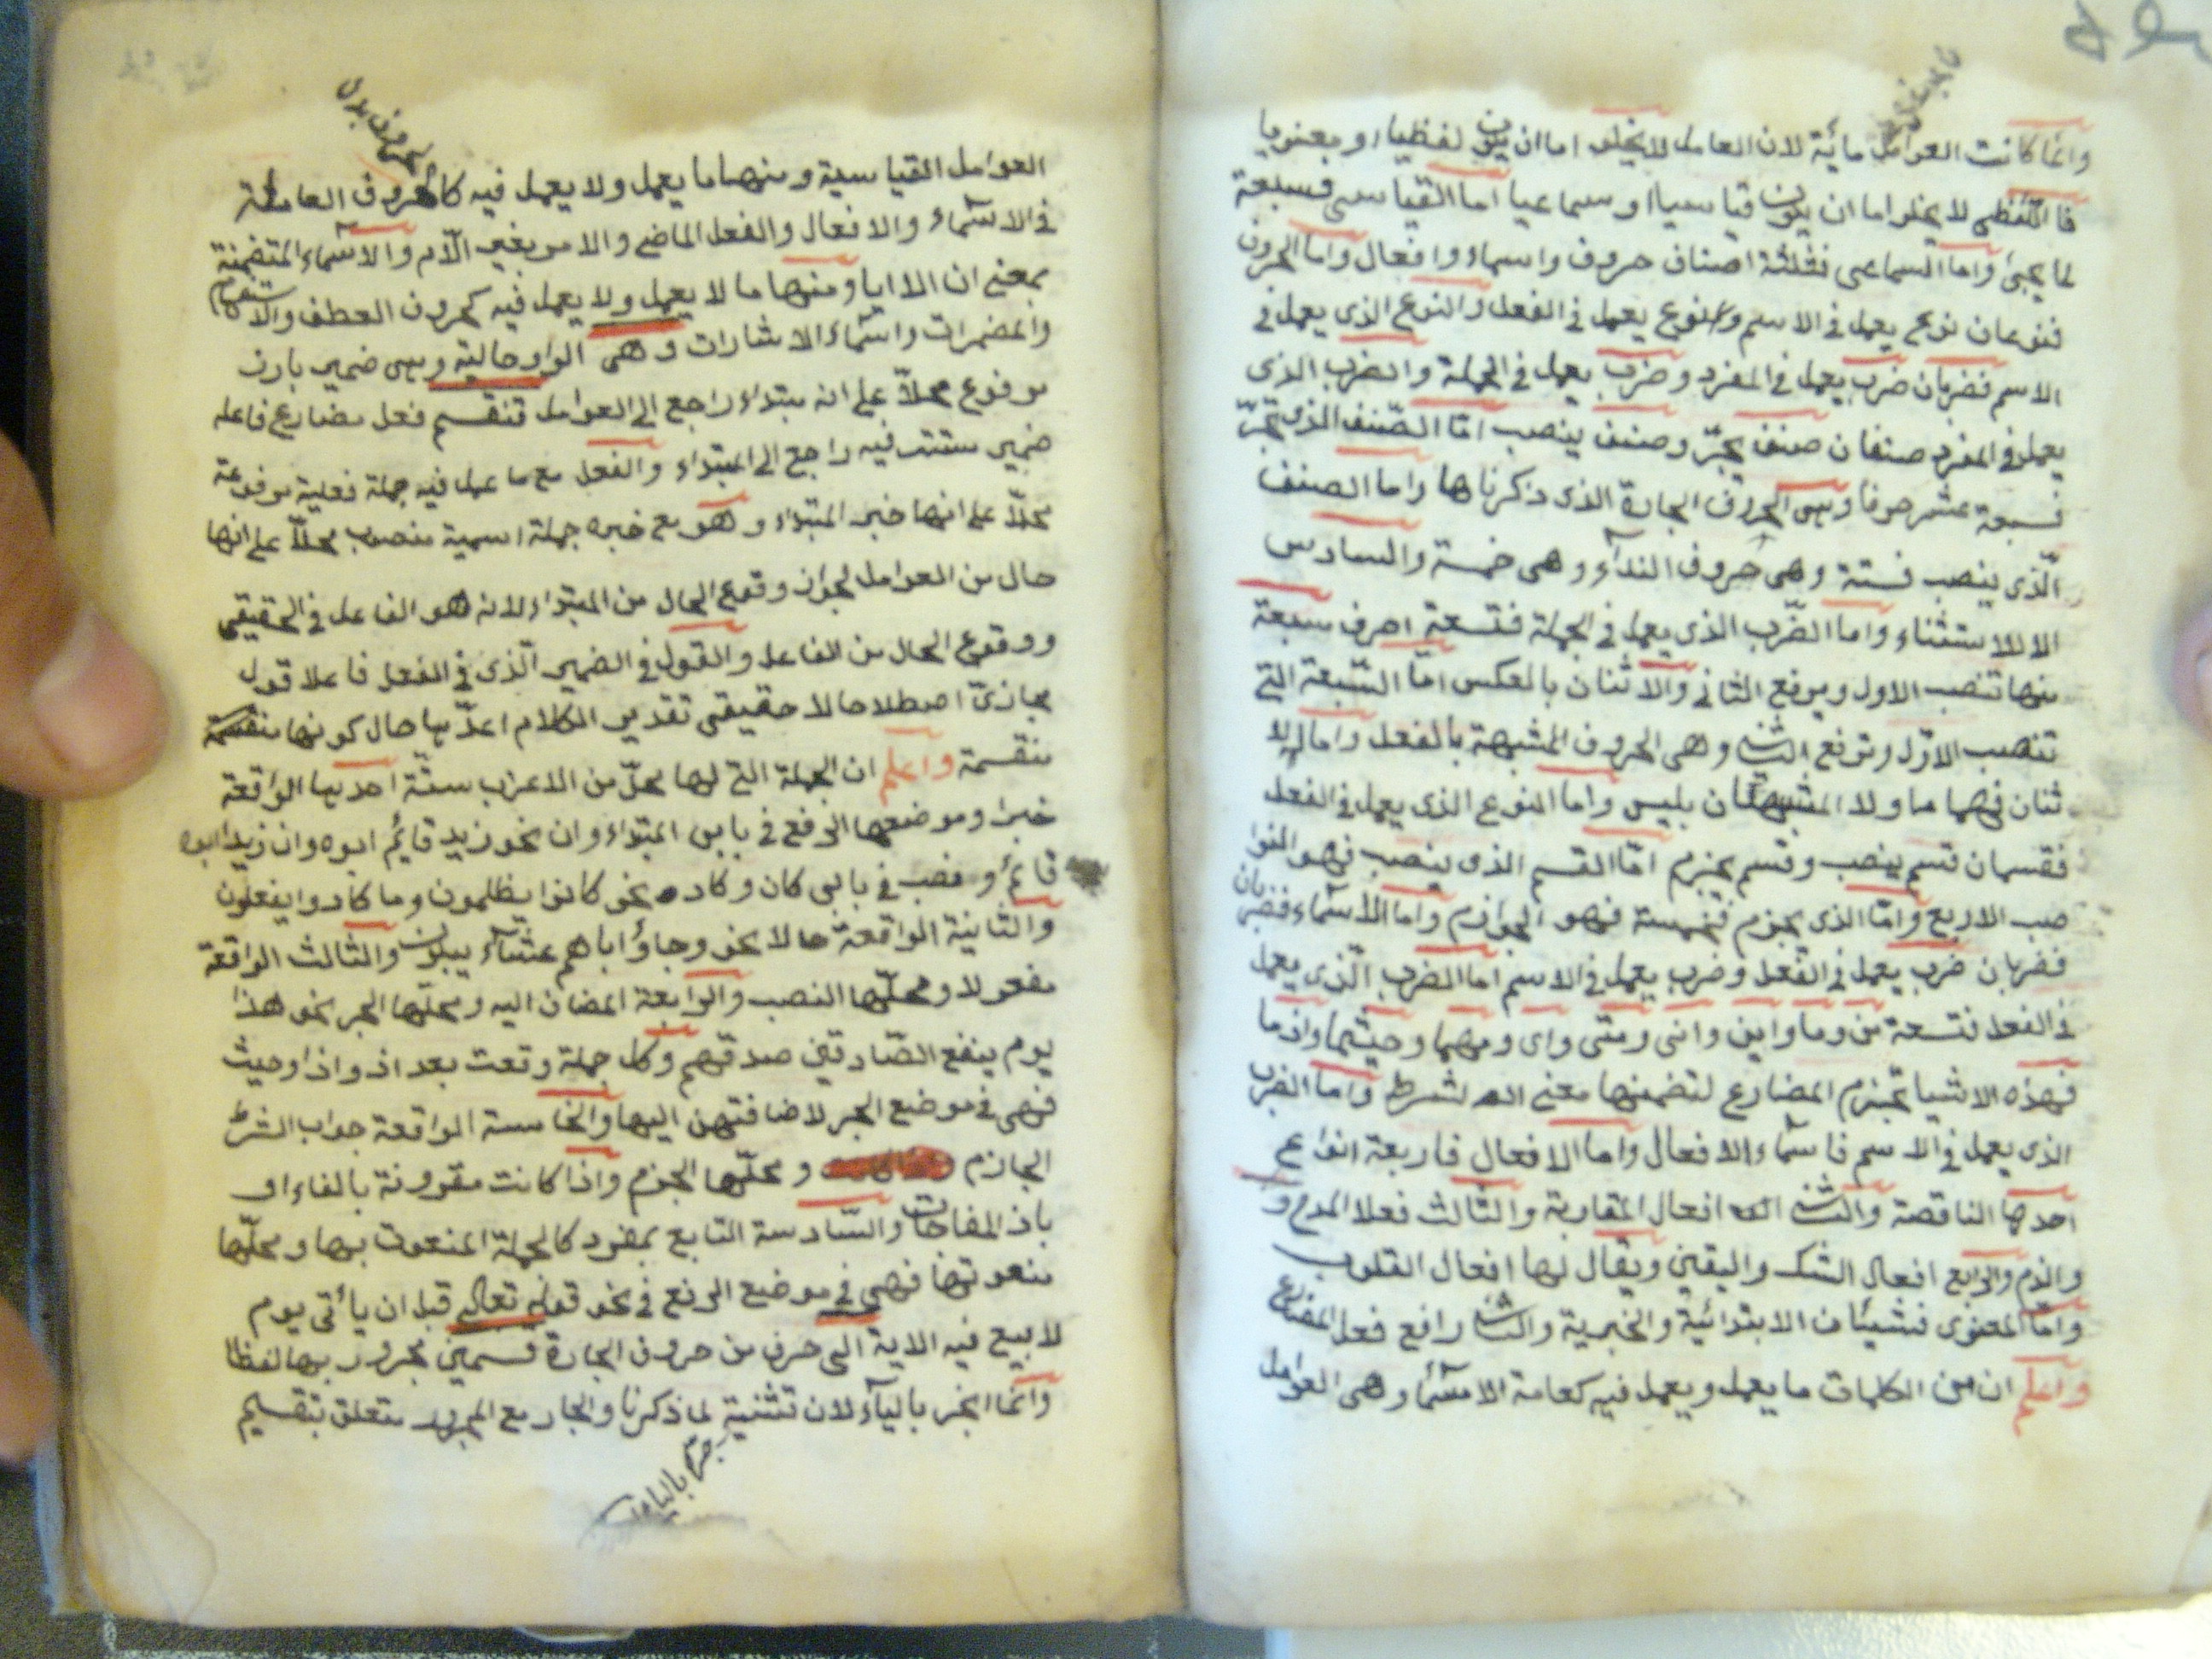 وانما كانت العوامل مائة لان العامل لا يخلو اما ان يكون لفظيا او معنويا
فاللفظى لا يخلوا ما ان يكون قياسيا او سماعيا اما القياسى فسبعة
لما يجئ واما السماعى فثلثة اصناف حروف واسماء وافعال واما الحروف
فنوعان نوع يعمل فى الاسم ونوع يعمل فى الفعل والنوع الذى يعمل فى
الاسم فضربان ضرب يعمل فى المفرد وضرب يعمل فى الجملة والضرب الذى
يعمل فى المفرد صنفان صنف يجرّ وصنف ينصب امّا الصّنف الذى يجرّ
فسبعة عشر حرفا وهى الحروف الجارة الذى ذكرناها واما الصنف
الّذى ينصب فستة وهى حروف الندآء وهى خمسة والسادس
الا للاستثناء واما الضّرب الذى يعمل فى الجملة فتسعة احرف سبعة
منها تنصب الاول ويرفع الثانى والاثنان بالعكس امّا السّبعة التى
تنصب الاوّل وترفع الثانى وهى الحروف المشبهة بالفعل واما الا
ثنان فهما ما ولا المشبهتان بليس واما النوع الذى يعمل فى الفعل
فقسمان قسم ينصب وقسم يجزم امّا القسم الذى ينصب فهو النوا
صب الاربع وامّا الذى يجزم فخمسة فهو الجوازم واما الاسّماء فضربان
فضربان ضرب يعمل فى الفعل وضرب يعمل فى الاسم اما الضرب الّذى يعمل
فى الفعل فتسعة من وما واين وانى ومتى واى ومهما وحيثما واذما
فهذه الاشيا تجزم المضارع لتضمنها معنى الشرط واما الضرب
الذى يعمل فى الاسم فاسمآء الافعال واما الافعال فاربعة انواع
احدها الناقصة والثانى افعال المقاربة والثالث فعلا المدح و
والذم والرابع افعال الشك واليقين ويقال لها افعال القلوب
وامّا المعنوى فشيئان الابتدائية والخبرية والثانى رافع فعل المضارع
واعلم ان من الكلمات ما يعمل ويعمل فيه كعامة الاسمآء وهى العوامل
العوامل القياسية ومنها ما يعمل ولا يعمل فيه كالحروف العاملة
فى الاسمآء والافعال والفعل الماضى والامر بغير اللّام والاسمآء المتضمنة
بمعنى ان الا ايا ومنها ما لا يعمل ولا يعمل فيه كحروف العطف والاستفهام
والمضمرات واسمآء الاشارات وهى الواو حالية وهى ضمير بارز
مرفوع محلاّ على انه مبتداء راجع الى العوامل تنقسم فعل مضارع فاعله
ضمير مستتر فيه راجع الى المبتداء والفعل مع ما عمل فيه جملة فعلية مرفوعة
محلاّ على انها خبر المبتداء وهو مع خبره جملة اسمية منصوب محلاّ على انها
حال من العوامل لجواز وقوع الحال من المبتداء لانه هو الفاعل فى الحقيقى
ووقوع الحال من الفاعل والقول فى الضمير الّذى فى الفعل فاعلا قول
مجازىّ اصطلاحا لا حقيقى تقدير الكلام اعدّها حال كونها منقسمة
منقسمة واعلم ان الجملة التى لها محلّ من الاعرب ستّة احديها الواقعة
خبرا وموضعها الرفع فى بابى المبتداء وان نحو زيد قايم ابوه وان زيدا ابوه
قائم ونصب فى بابى كان وكاد نحو كانوا يظلمون وما كادوا يفعلون
والثانية الواقعة حالا نحو وجاؤا اباهم عشآء يبكون والثالث الواقعة
مفعولا ومحلّها النصب والرابعة المضاف اليه ومحلّها الجر نحو هذا
يوم ينفع الصّادقين صدقهم وكل جملة وقعت بعد اذ واذا وحيث
فهى فى موضع الجر لاضافتهن اليها والخامسة الواقعة جواب الشرط
الجازم ومحلّها الجزم واذا كانت مقرونة بالفاء او
باذ المفاجات والسّادسة التابع بمفرد كالجملة المنعوت بها ومحلّها
منعوتها فهى فى موضع الرفع فى نحو قوله تعالى قبل ان يأتى يوم
لا بيع فيه الاية الى حرف من حروف الجارة قسمين مجرور بها لفظا
وانما انجر باليآء لان تثنية لما ذكرنا والجار مع المجرور متعلق بتقسيم